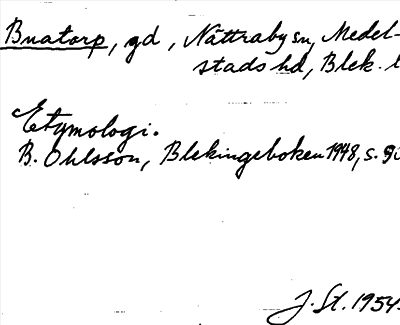 Buatorp, gd, Nättraby sn, Medel-
stads hd, Blek. l
Etymologi.
B. Ohlsson, Blekingeboken 1948, s.
J. St. 1954.